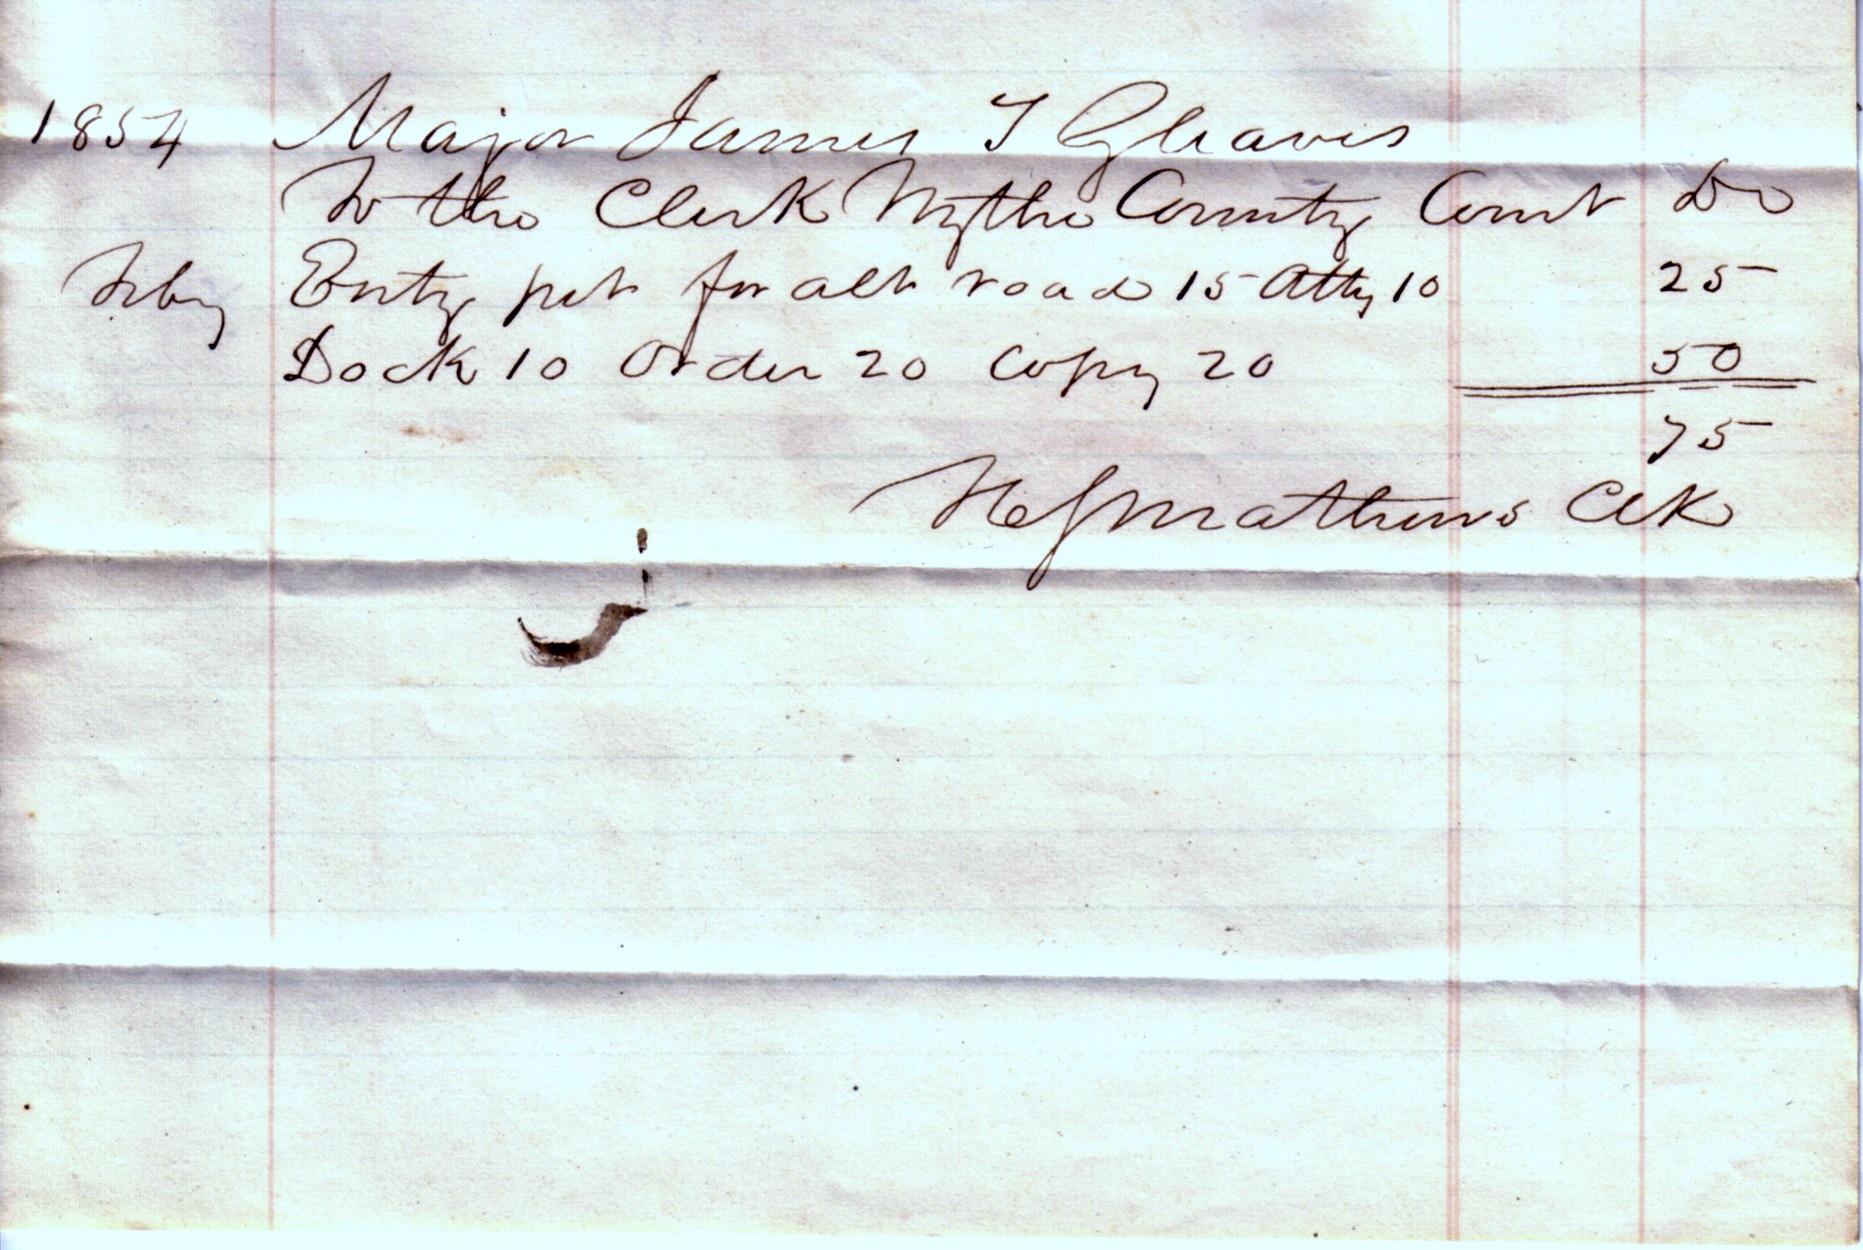 1854 Major James T Gleaves
To the Clerk Wythe County Court Dr
Feby Enty pet for alt road 15 Atty 10 25
Dock 10 Order 20 Copy 20 50
75
Mathews Clk